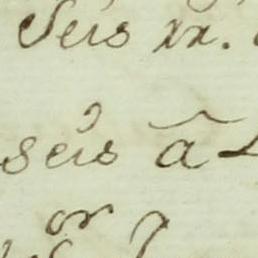 Seis xx.
seis ã
or